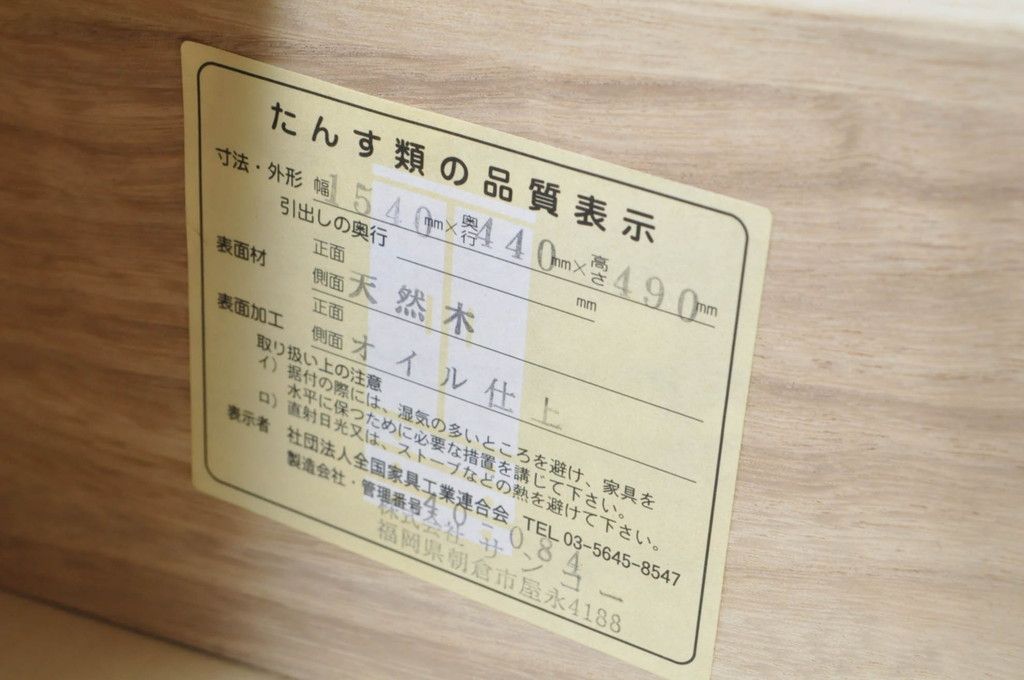 たんす類の品質表示
寸法・外形 幅1540mm×奥行440mm×高さ490mm
引出しの奥行 mm
表面材 正面
側面 天然木
表面加工 正面
側面 オイル仕上
取り扱い上の注意
イ）据付の際には、湿気の多いところを避け、家具を
水平に保つために必要な措置を講じて下さい。
ロ）直射日光又は、ストーブなどの熱を避けて下さい。
表示者 社団法人全国家具工業連合会 TEL 03-5645-8547
製造会社・管理番号 40-084
株式会社 サンコー
福岡県朝倉市屋永4188